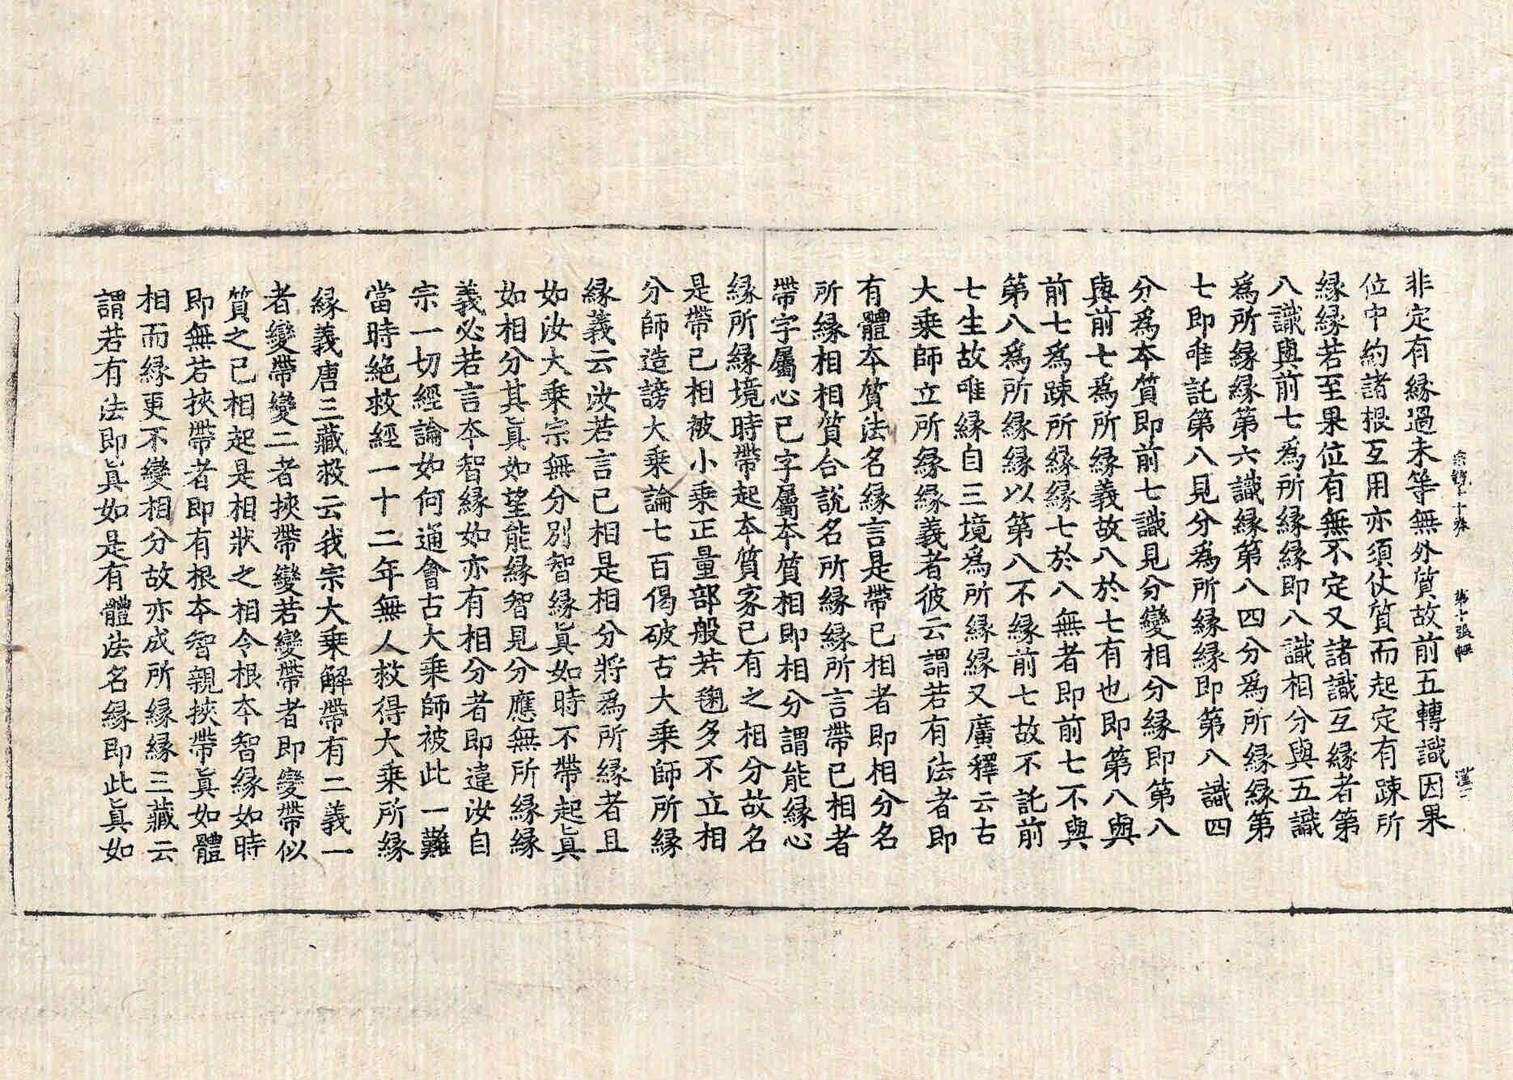 非定有緣過未等無外質故前五轉識因果
位中約諸根互用亦須仗質而起定有踈所
緣緣若至果位有無不定又諸識互緣者第
八識與前七為所緣緣即八識相分與五識
為所緣緣第六識緣第八四分為所緣緣第
七即唯託第八見分為所緣緣即第八識四
分為本質即前七識見分變相分緣即第八
與前七為所緣義故八於七有也即第八與
前七為踈所緣緣七於八無者即前七不與
第八為所緣緣以第八不緣前七故不託前
七生故唯緣自三境為所緣緣又廣釋云古
大乘師立所緣緣義者彼云謂若有法者即
有體本質法名緣言是帶已相者即相分名
所緣相相質合說名所緣緣所言帶已相者
帶字屬心已字屬本質相即相分謂能緣心
緣所緣境時帶起本質家已有之相分故名
是帶已相被小乘正量部般若毱多不立相
分師造謗大乘論七百偈破古大乘師所緣
緣義云汝若言已相是相分將為所緣者且
如汝大乘宗無分別智緣真如時不帶起真
如相分其真如望能緣智見分應無所緣緣
義必若言本智緣如亦有相分者即違汝自
宗一切經論如何通會古大乘師被此一難
當時絕救經一十二年無人救得大乘所緣
緣義唐三藏救云我宗大乘解帶有二義一
者變帶變二者挾帶變若變帶者即變帶似
質之已相起是相狀之相令根本智緣如時
即無若挾帶者即有根本智親挾帶真如體
相而緣更不變相分故亦成所緣緣三藏云
謂若有法即真如是有體法名緣即此真如